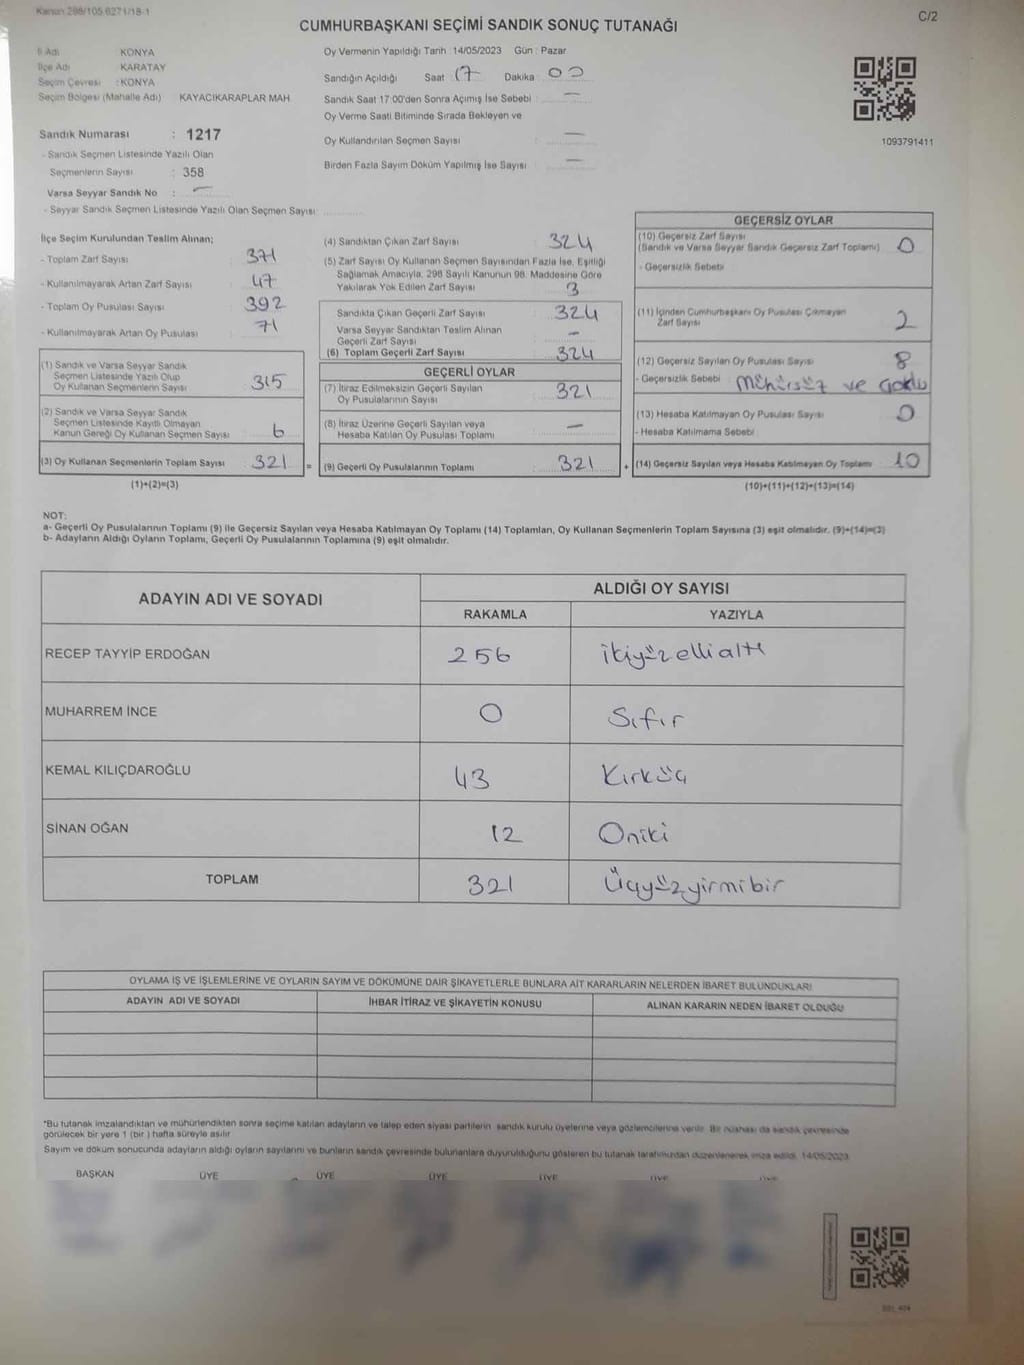 Kanun 298/105,6271/18-1
C/2
CUMHURBAŞKANI SEÇİMİ SANDIK SONUÇ TUTANAĞI
İl Adı KONYA
İlçe Adı KARATAY
Seçim Çevresi : KONYA
Seçim Bölgesi (Mahalle Adı) KAYACIKARAPLAR MAH.
Sandık Numarası : 1217
- Sandık Seçmen Listesinde Yazılı Olan
Seçmenlerin Sayısı : 358
Varsa Seyyar Sandık No : —
- Seyyar Sandık Seçmen Listesinde Yazılı Olan Seçmen Sayısı:
Oy Vermenin Yapıldığı Tarih :14/05/2023 Gün : Pazar
Sandığın Açıldığı Saat 17 Dakika 00
Sandık Saat 17:00'den Sonra Açımış İse Sebebi : —
Oy Verme Saati Bitiminde Sırada Bekleyen ve
Oy Kullandırılan Seçmen Sayısı : —
Birden Fazla Sayım Döküm Yapılmış İse Sayısı : —
1093791411
İlçe Seçim Kurulundan Teslim Alınan;
- Toplam Zarf Sayısı 371
- Kullanılmayarak Artan Zarf Sayısı 47
- Toplam Oy Pusulası Sayısı 392
- Kullanılmayarak Artan Oy Pusulası 71
(1) Sandık ve Varsa Seyyar Sandık
Seçmen Listesinde Yazılı Olup
Oy Kullanan Seçmenlerin Sayısı 315
(2) Sandık ve Varsa Seyyar Sandık
Seçmen Listesinde Kayıtlı Olmayan
Kanun Gereği Oy Kullanan Seçmen Sayısı 6
(3) Oy Kullanan Seçmenlerin Toplam Sayısı 321 =
(1)+(2)=(3)
(4) Sandıktan Çıkan Zarf Sayısı 324
(5) Zarf Sayısı Oy Kullanan Seçmen Sayısından Fazla İse, Eşitliği
Sağlamak Amacıyla, 298 Sayılı Kanunun 98. Maddesine Göre
Yakılarak Yok Edilen Zarf Sayısı 3
Sandıkta Çıkan Geçerli Zarf Sayısı 324
Varsa Seyyar Sandıktan Teslim Alınan
Geçerli Zarf Sayısı —
(6) Toplam Geçerli Zarf Sayısı 324
GEÇERLİ OYLAR
(7) İtiraz Edilmeksizin Geçerli Sayılan
Oy Pusulalarının Sayısı 321
(8) İtiraz Üzerine Geçerli Sayılan veya
Hesaba Katılan Oy Pusulası Toplamı —
(9) Geçerli Oy Pusulalarının Toplamı 321 +
GEÇERSİZ OYLAR
(10) Geçersiz Zarf Sayısı
(Sandık ve Varsa Seyyar Sandık Geçersiz Zarf Toplamı) 0
- Geçersizlik Sebebi :
(11) İçinden Cumhurbaşkanı Oy Pusulası Çıkmayan
Zarf Sayısı 2
(12) Geçersiz Sayılan Oy Pusulası Sayısı 8
- Geçersizlik Sebebi : Mühürsüz ve
(13) Hesaba Katılmayan Oy Pusulası Sayısı 0
- Hesaba Katılmama Sebebi :
(14) Geçersiz Sayılan veya Hesaba Katılmayan Oy Toplamı 10
(10)+(11)+(12)+(13)=(14)
NOT:
a- Geçerli Oy Pusulalarının Toplamı (9) ile Geçersiz Sayılan veya Hesaba Katılmayan Oy Toplamı (14) Toplamları, Oy Kullanan Seçmenlerin Toplam Sayısına (3) eşit olmalıdır. (9)+(14)=(3)
b- Adayların Aldığı Oyların Toplamı, Geçerli Oy Pusulalarının Toplamına (9) eşit olmalıdır.
ADAYIN ADI VE SOYADI ALDIĞI OY SAYISI
RAKAMLA YAZIYLA
RECEP TAYYİP ERDOĞAN 256 ikiyüzellialtı
MUHARREM İNCE 0 Sıfır
KEMAL KILIÇDAROĞLU 43 Kırküç
SİNAN OĞAN 12 Oniki
TOPLAM 321 Üçyüzyirmibir
OYLAMA İŞ VE İŞLEMLERİNE VE OYLARIN SAYIM VE DÖKÜMÜNE DAİR ŞİKAYETLERLE BUNLARA AİT KARARLARIN NELERDEN İBARET BULUNDUKLARI
ADAYIN ADI VE SOYADI İHBAR İTİRAZ VE ŞİKAYETİN KONUSU ALINAN KARARIN NEDEN İBARET OLDUĞU
*Bu tutanak imzalandıktan ve mühürlendikten sonra seçime katılan adayların ve talep eden siyasi partilerin sandık kurulu üyelerine veya gözlemcilerine verilir. Bir nüshası da sandık çevresinde
görülecek bir yere 1 (bir ) hafta süreyle asılır.
Sayım ve döküm sonucunda adayların aldığı oyların sayılarını ve bunların sandık çevresinde bulunanlara duyurulduğunu gösteren bu tutanak tarafımızdan düzenlenerek imza edildi. 14/05/2023
BAŞKAN ÜYE ÜYE ÜYE ÜYE ÜYE ÜYE